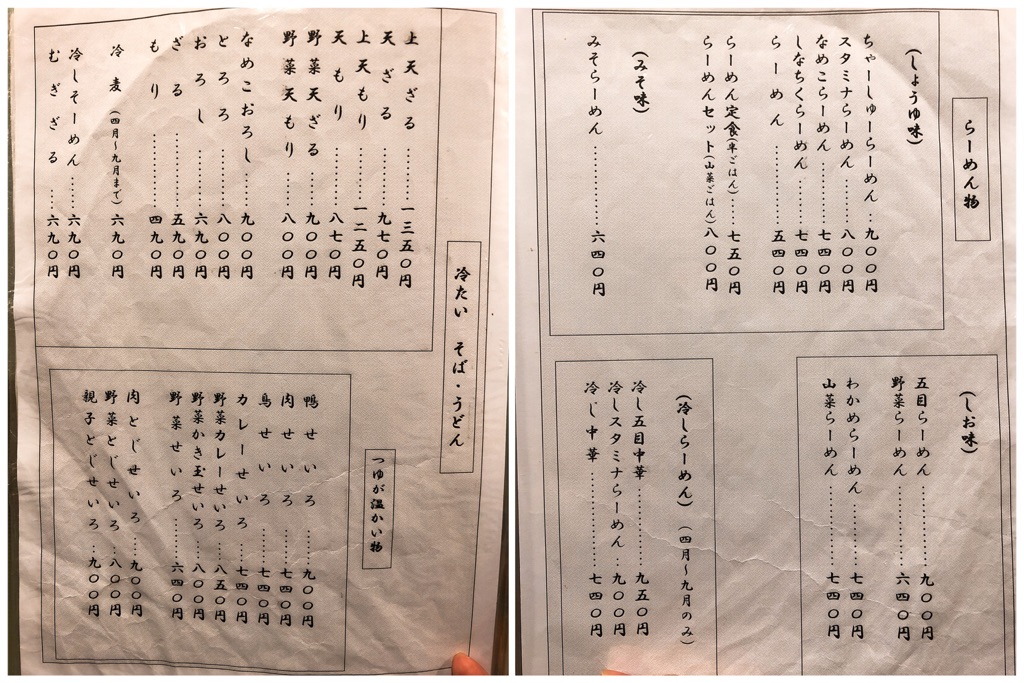 らーめん物
(しょうゆ味)
ちゃーしゅーらーめん‥九〇〇円
スタミナらーめん……八〇〇円
なめこらーめん………七四〇円
しなちくらーめん……七四〇円
らーめん………五四〇円
らーめん定食(半ごはん)……七五〇円
らーめんセット(山菜ごはん)八〇〇円
(みそ味)
みそらーめん…………六四〇円
(しお味)
五目らーめん…………九〇〇円
野菜らーめん…………六四〇円
わかめらーめん………七四〇円
山菜らーめん…………七四〇円
(冷しらーめん)(四月〜九月のみ)
冷し五目中華…………九五〇円
冷しスタミナらーめん……九〇〇円
冷し中華…………七四〇円
冷たい そば・うどん
上天ざる………一三五〇円
天ざる………九七〇円
上天もり………一二五〇円
天もり………八七〇円
野菜天ざる……九〇〇円
野菜天もり……八〇〇円
なめこおろし……九〇〇円
とろろ………八〇〇円
おろし………六九〇円
ざる…………五九〇円
もり…………四九〇円
冷麦(四月〜九月まで)六九〇円
冷しそーめん……六九〇円
むぎざる………六九〇円
つゆが温かい物
鴨せいろ………九〇〇円
肉せいろ………七四〇円
鳥せいろ………七四〇円
カレーせいろ……七四〇円
野菜カレーせいろ…八五〇円
野菜かき玉せいろ…八〇〇円
野菜せいろ………六四〇円
肉とじせいろ……九〇〇円
野菜とじせいろ…八〇〇円
親子とじせいろ…九〇〇円